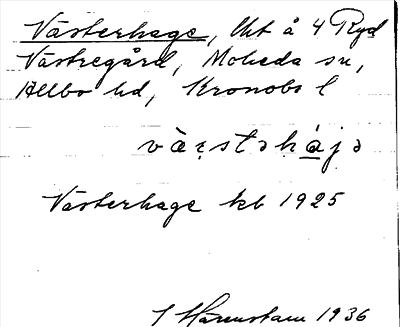 Västerhage, lht å 4 Ryd
Västregård, Moheda sn,
Allbo hd, Kronobs l
Västerhage kb 1925
1936